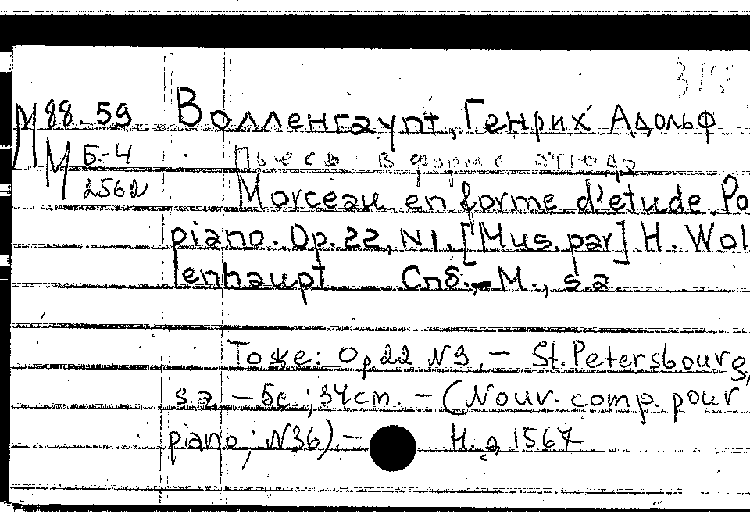 М 88-59 Волленгаупт, Генрих Адольф
М Б-4 Пьеса в форме этюда
2562 Morceau en forme d'etude Po
piano. Op. 22, N1. [Mus. par] H. Wol
lenhaupt Спб.-М., s.a.
Тоже: Op 22 N3, - St. Petersbourg,
s a - 5c; 34cm. - (Nouv. comp. pour
piano; N36). - Н.д. 1567